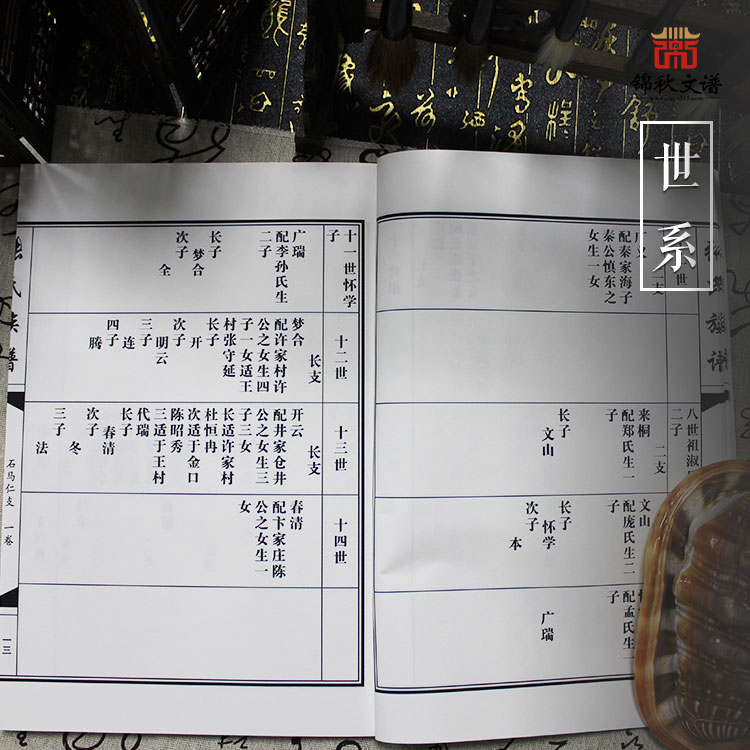 锦秋文谱
世系
世
二支
广义
配秦家海子
秦公慎东之
女生一女
八世祖淑
二子
二支
来桐
配郑氏生一
子
长子
文山
文山
配庞氏生二
子
长子
怀学
次子
本
配孟氏生一
子
广瑞
十一世怀学
子
广瑞
配李孙氏生
二子
长子
梦合
次子
全
十二世
长支
梦合
配许家村许
公之女生四
子一女适王
村张守延
长子
开
次子
明云
三子
连
四子
腾
十三世
长支
开云
配井家仓井
公之女生三
子三女
长适许家村
杜恒冉
次适于金口
陈昭秀
三适于王村
代瑞
长子
春清
次子
冬
三子
法
十四世
春清
配卞家庄陈
公之女生一
女
氏族谱
石马仁支 一卷
一三